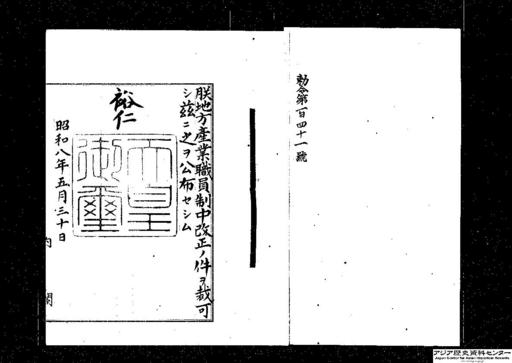 勅令第百四十一號
朕地方產業職員制中改正ノ件ヲ裁可
シ茲ニ之ヲ公布セシム
裕仁
天皇御璽
昭和八年五月三十日
内閣
アジア歴史資料センター
Japan Center for Asian Historical Records